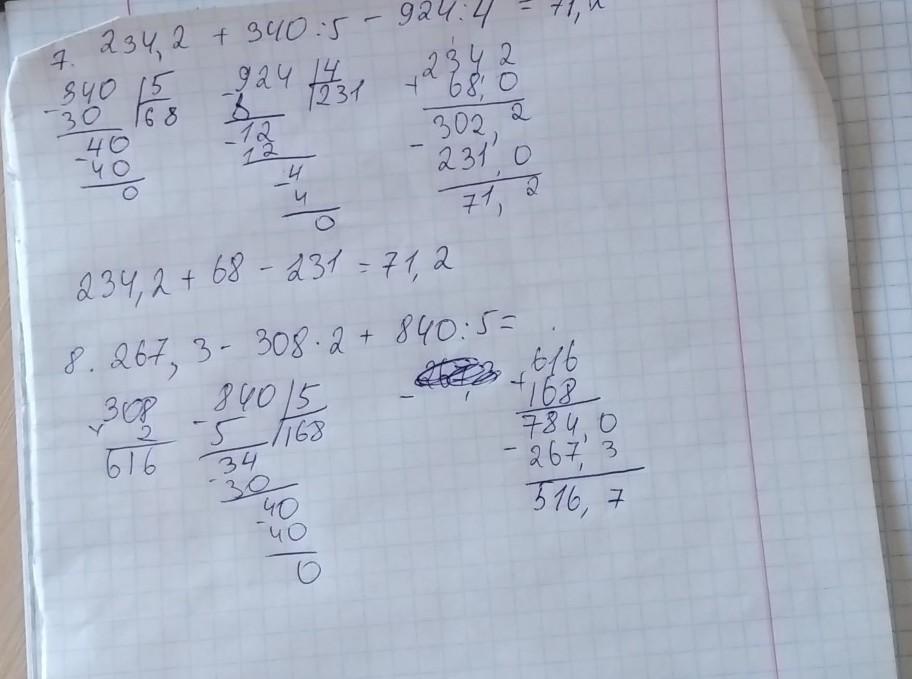 7. 234,2 + 340:5 - 924:4 = 71,2
340 | 5
- 30 | 68
40
- 40
0
- 924 | 4
8 | 231
- 12
12
- 4
4
0
234 2
+ 68,0
302,2
- 231,0
71,2
234,2 + 68 - 231 = 71,2
8. 267,3 - 308·2 + 840:5 =
308
× 2
616
- 840 | 5
5 | 168
34
- 30
40
- 40
0
-
616
+ 168
784,0
- 267,3
516,7